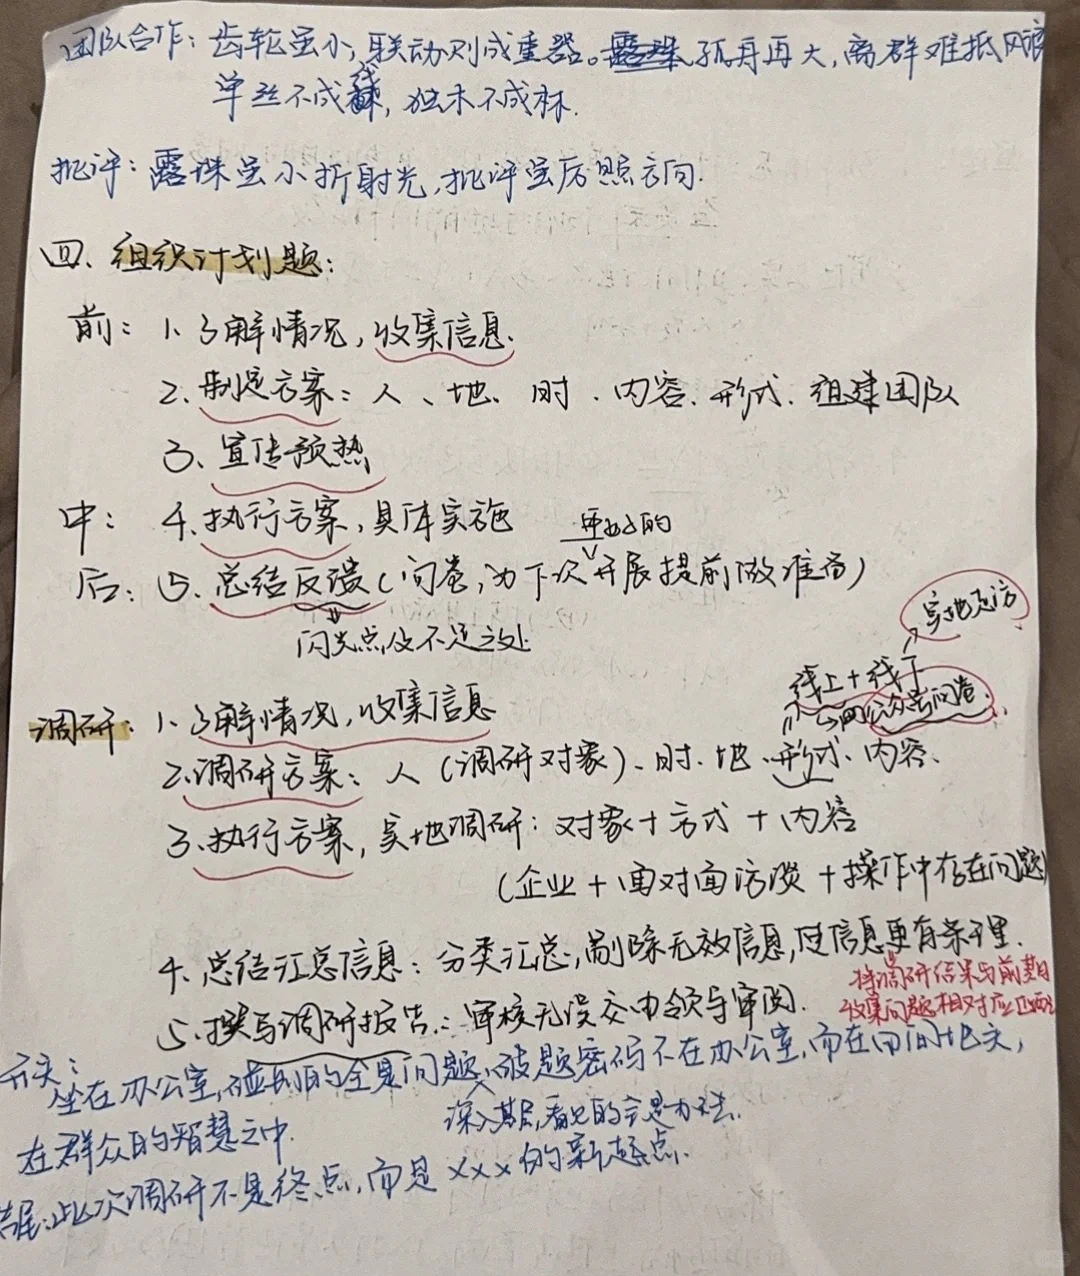 团队合作：齿轮虽小，联动则成重器。孤舟再大，离群难抵风浪
单丝不成线，独木不成林.
批评：露珠虽小折射光，批评虽厉照方向.
四、组织计划题：
前：1、了解情况，收集信息.
2、制定方案：人、地、时、内容、形式、组建团队
3、宣传预热
中：4、执行方案，具体实施
更好的
后：5、总结反馈（问卷，为下次开展提前做准备）
闪光点及不足之处
实地走访
线上+线下
公众号问卷.
调研：1、了解情况，收集信息
2、调研方案：人（调研对象）、时、地、形式、内容、
3、执行方案，实地调研：对象+方式+内容
（企业+面对面访谈+操作中存在问题）
4、总结汇总信息：分类汇总，剔除无效信息，使信息更有条理.
将调研结果与前期
收集问题相对应匹配
5、撰写调研报告：审核无误交由领导审阅.
开头：
坐在办公室，碰到的全是问题，破题密码不在办公室，而在田间地头，
深入基层，看见的全是办法.
在群众的智慧之中.
结尾：此次调研不是终点，而是xxx的新起点.